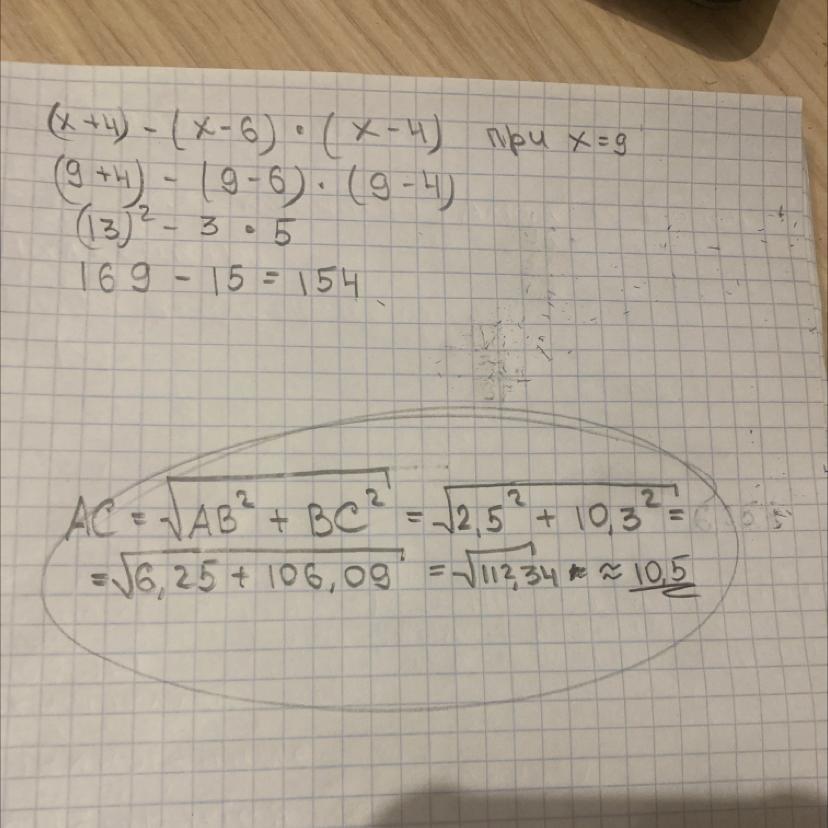 (x+4) - (x-6) · (x-4) при x=9
(9+4) - (9-6) · (9-4)
(13)² - 3 · 5
169 - 15 = 154
AC = √AB² + BC² = √2,5² + 10,3² =
= √6,25 + 106,09 = √112,34 ≈ 10,5